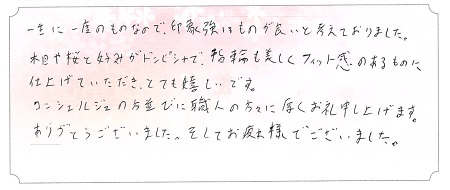 一生に一度のものなので、印象強いものが良いと考えておりました。
木目や桜と好みがドンピシャで、指輪も美しくフィット感のあるものに
仕上げていただき、とても嬉しいです。
コンシェルジュの方並びに職人の方々に厚くお礼申し上げます。
ありがとうございました。そしてお疲れ様でございました。